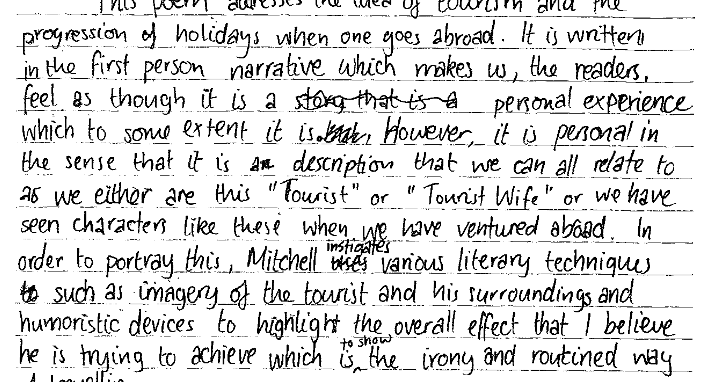 This poem adresses the idea of tourism and the
progression of holidays when one goes abroad. It is written
in the first person narrative which makes us, the readers,
feel as though it is a story that is a personal experience
which to some extent it is. However, it is personal in
the sense that it is a description that we can all relate to
as we either are this "Tourist" or "Tourist Wife" or we have
seen characters like these when we have ventured aboad. In
order to portray this, Mitchell uses instigates various literary techniques
to such as imagery of the tourist and his surroundings and
humoristic devices to highlight the overall effect that I believe
he is trying to achieve which is to show the irony and routined way